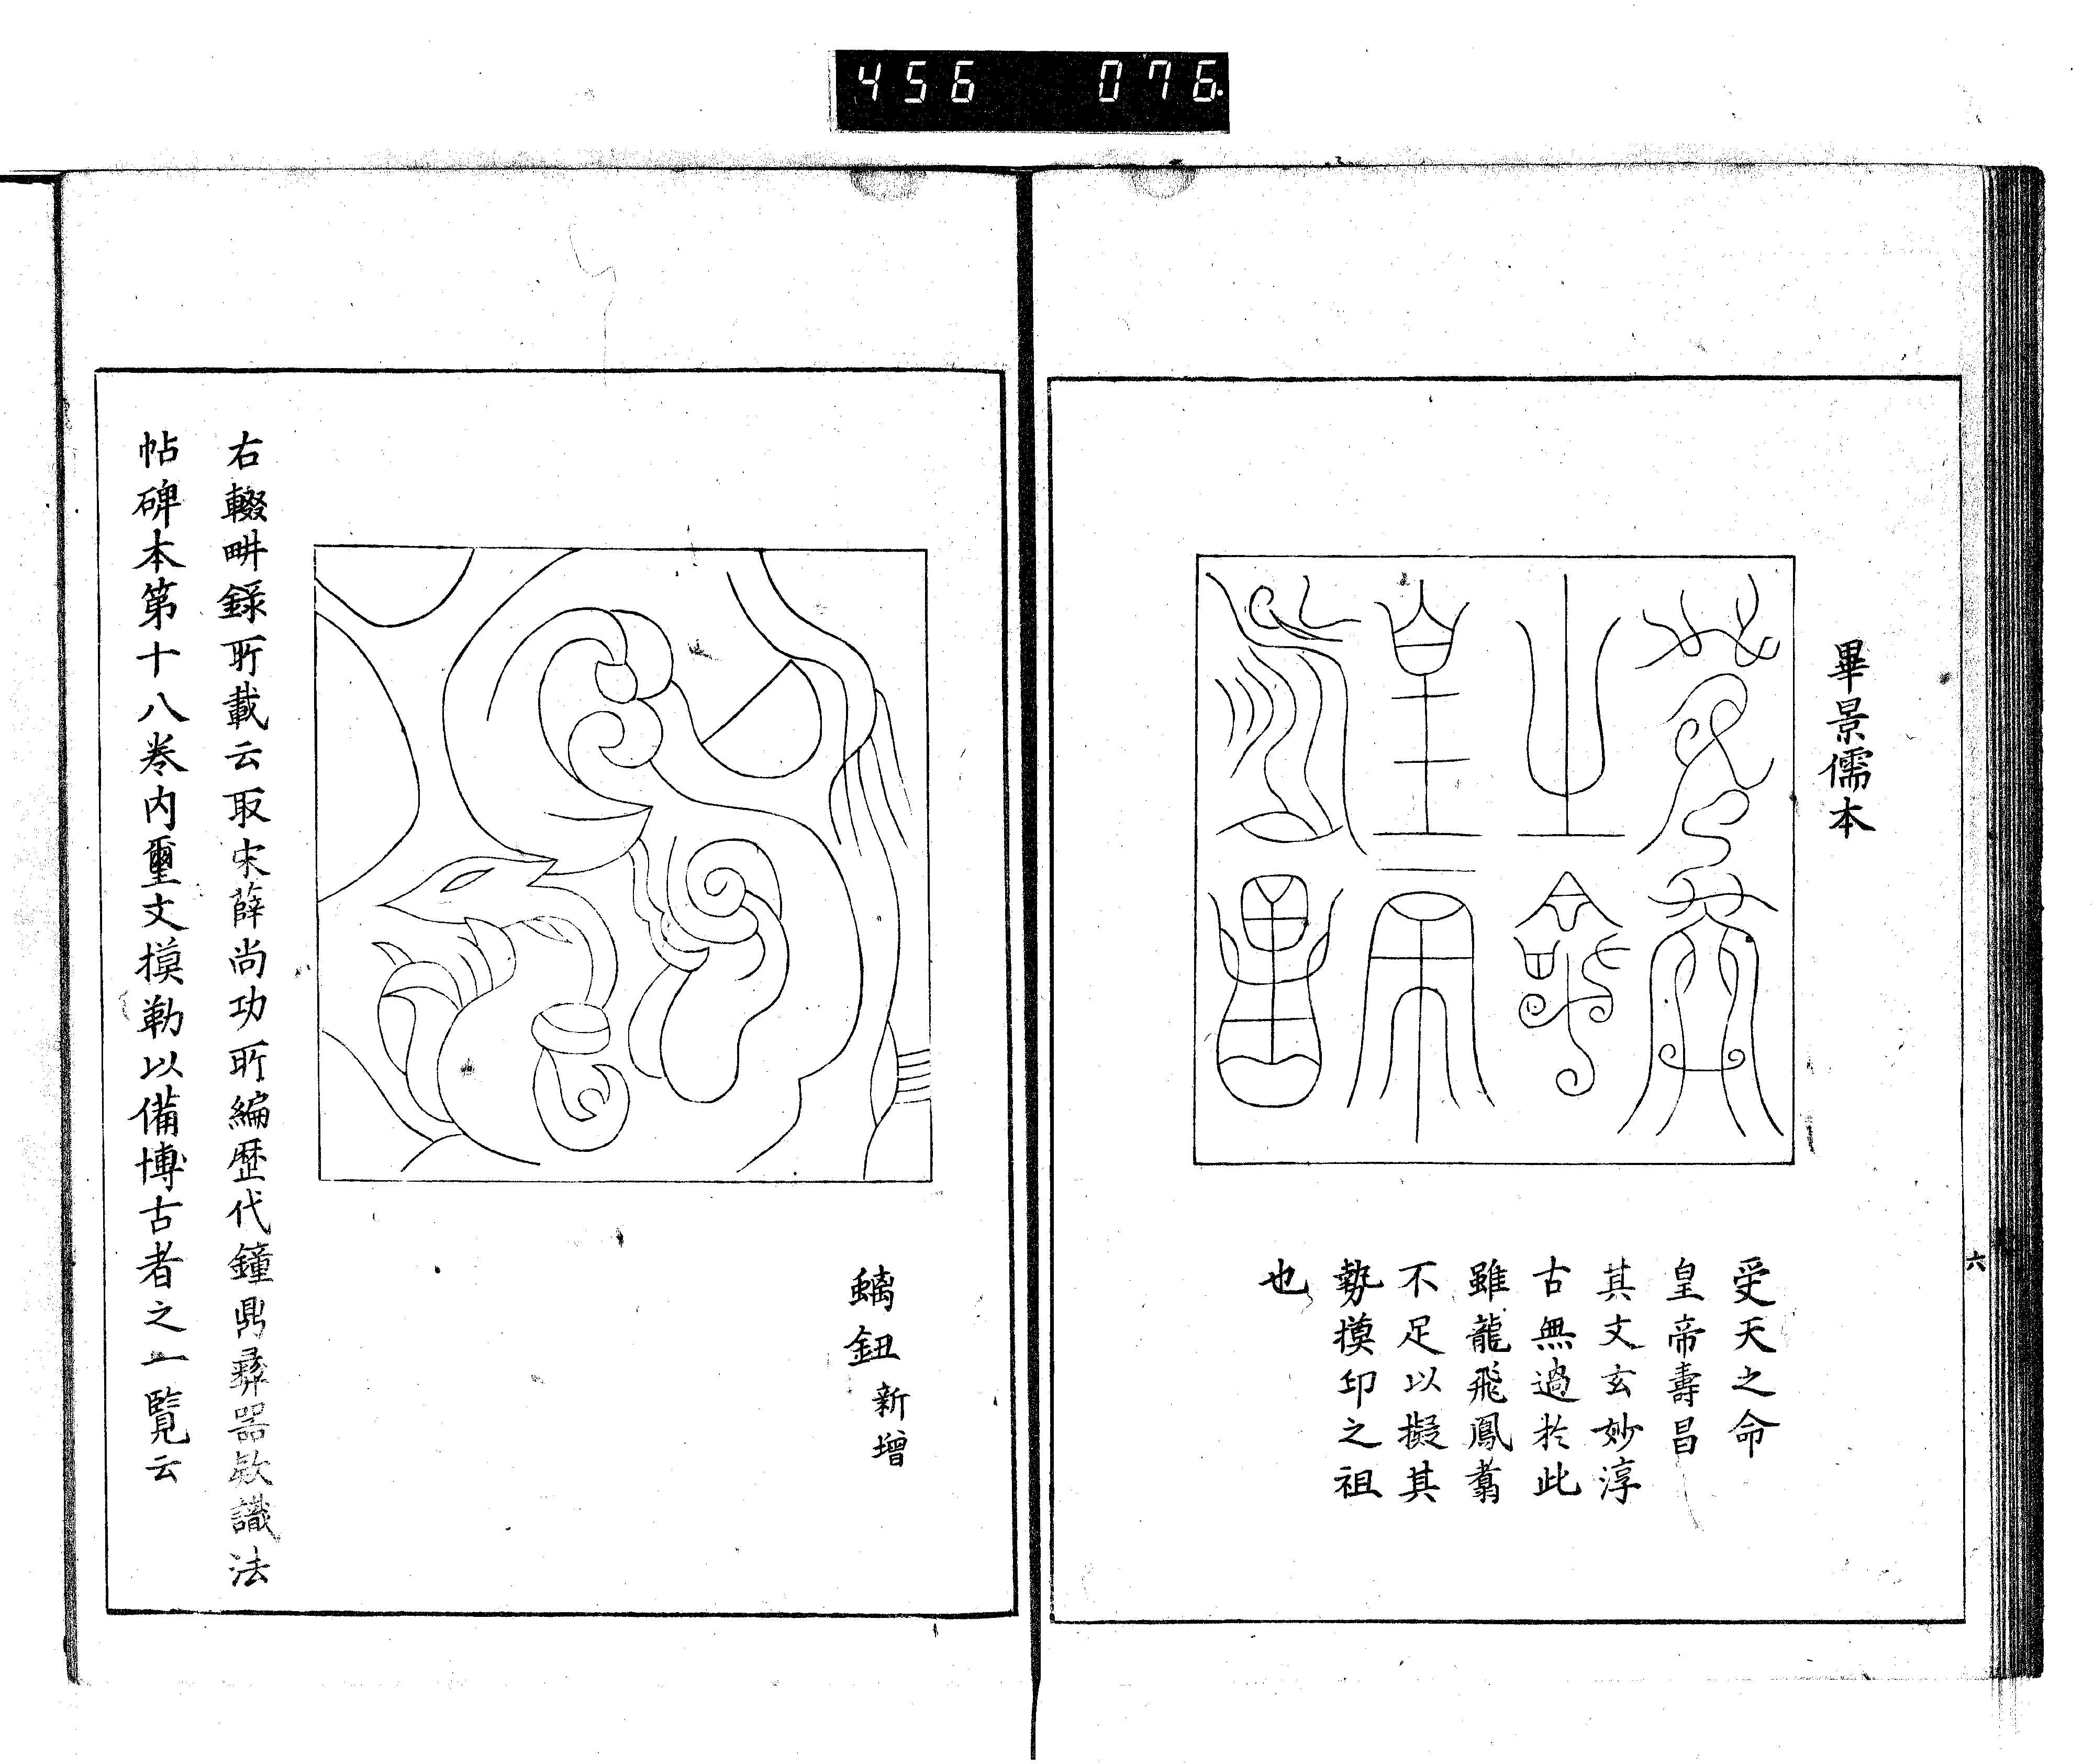 456 076
畢景儒本
受天之命
皇帝壽昌
其文玄妙淳
古無過於此
雖龍飛鳳翥
不足以擬其
勢摸印之祖
也
六
螭鈕 新增
右輟畊錄所載云取宋薛尚功所編歷代鐘鼎彝器款識法
帖碑本第十八卷内璽文摸勒以備博古者之一覧云